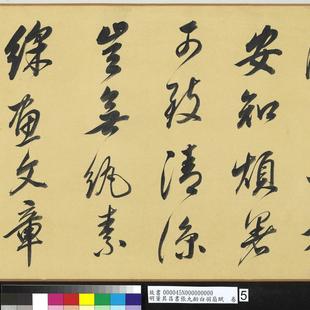 安知煩暑
可致清涼
豈無紈素
綵畫文章
故書 000045N000000000
明董其昌書張九齡白羽扇賦 卷
5